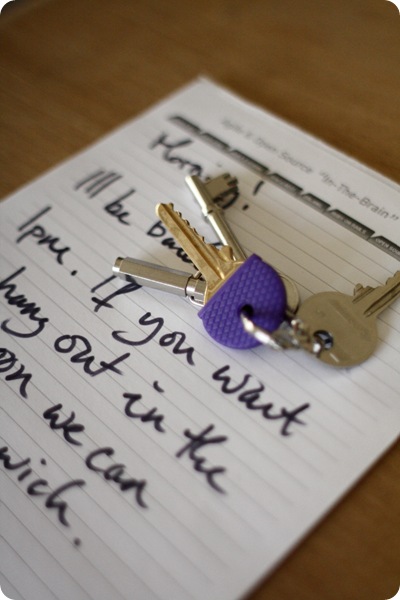 Open Source "In-The-Brain"
Morning!
I'll be back
1pm. If you want
hang out in the
oon we can
wich.